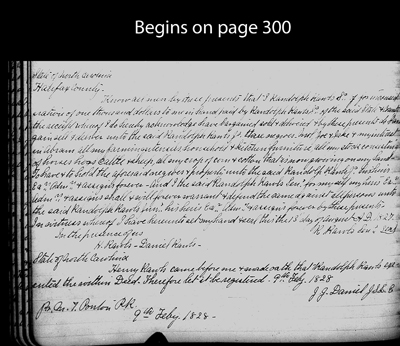 Begins on page 300
State of North Carolina
Halifax County
Know all men by these presents that I Randolph Rawls Sr. of for in consid
eration of one thousand dollars to me in hand paid by Randolph Rawls Jr. of the said State &
the receipt whereof I do hereby acknowledge have bargained sold & delivered & by these presents do bar
gain sell & deliver unto the said Randolph Rawls Jr. three negroes,
all my farming utensils household & kitchen furniture all my stock consisting
of horses hogs cattle & sheep, all my crop of corn & cotton that is now growing on my land
to have & to hold the aforesaid negroes & property unto the said Randolph Rawls Jr. his heirs
Exr. Admr. & assigns forever. And I the said Randolph Rawls Senr. for myself my heirs Exr.
Admr. & assigns shall & will forever warrant & defend the same against all persons unto
the said Randolph Rawls Junr. his heirs Exr. Admr. & assigns forever by these presents
In witness whereof I have hereunto set my hand & seal this the 3 day of August A.D. 1827
In the presence of us R. Rawls Senr. Seal
H. Rawls - Daniel Rawls -
State of North Carolina
Henry Rawls came before me & made oath that Randolph Rawls exe
cuted the within Deed. Therefore let it be registered. 9th Feby. 1828
J. J. Daniel
9th Feby. 1828 -